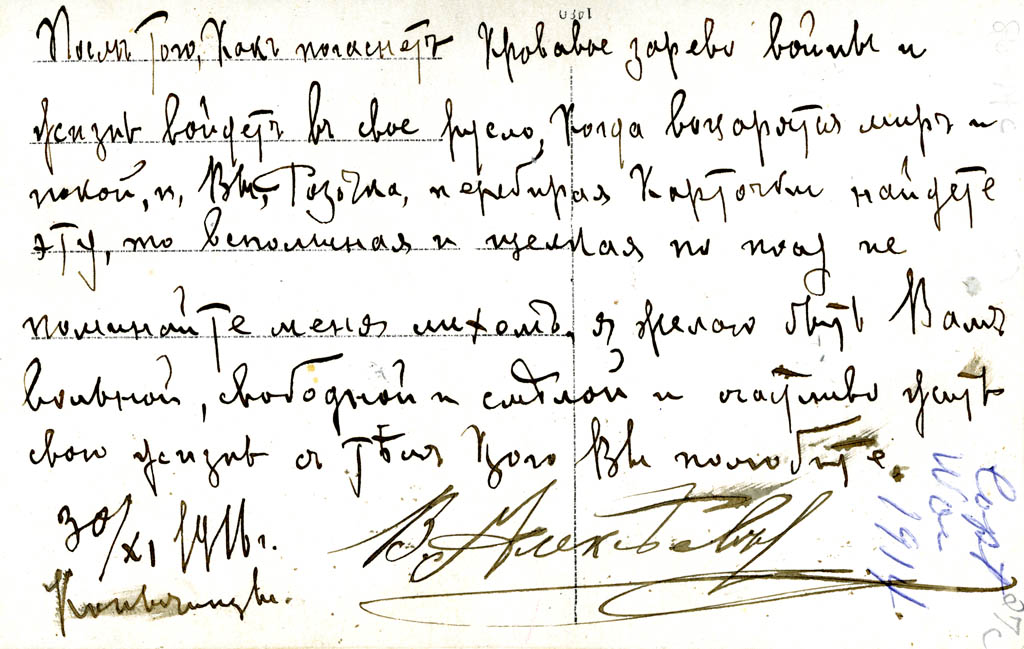 Послѣ того, какъ погаснетъ кровавое зарево войны и
жизнь войдетъ въ свое русло, когда воцарятся миръ и
покой, и, Вы, Тозочка, перебирая карточки найдете
эту, то вспоминая и щелкая по носу не
поминайте меня лихомъ, я желаю быть Вамъ
вольной, свободной и смѣлой и счастливо жить
свою жизнь съ тѣмъ кого Вы полюбите.
30/XI 1916 г.
В. Алексѣевъ
1914.